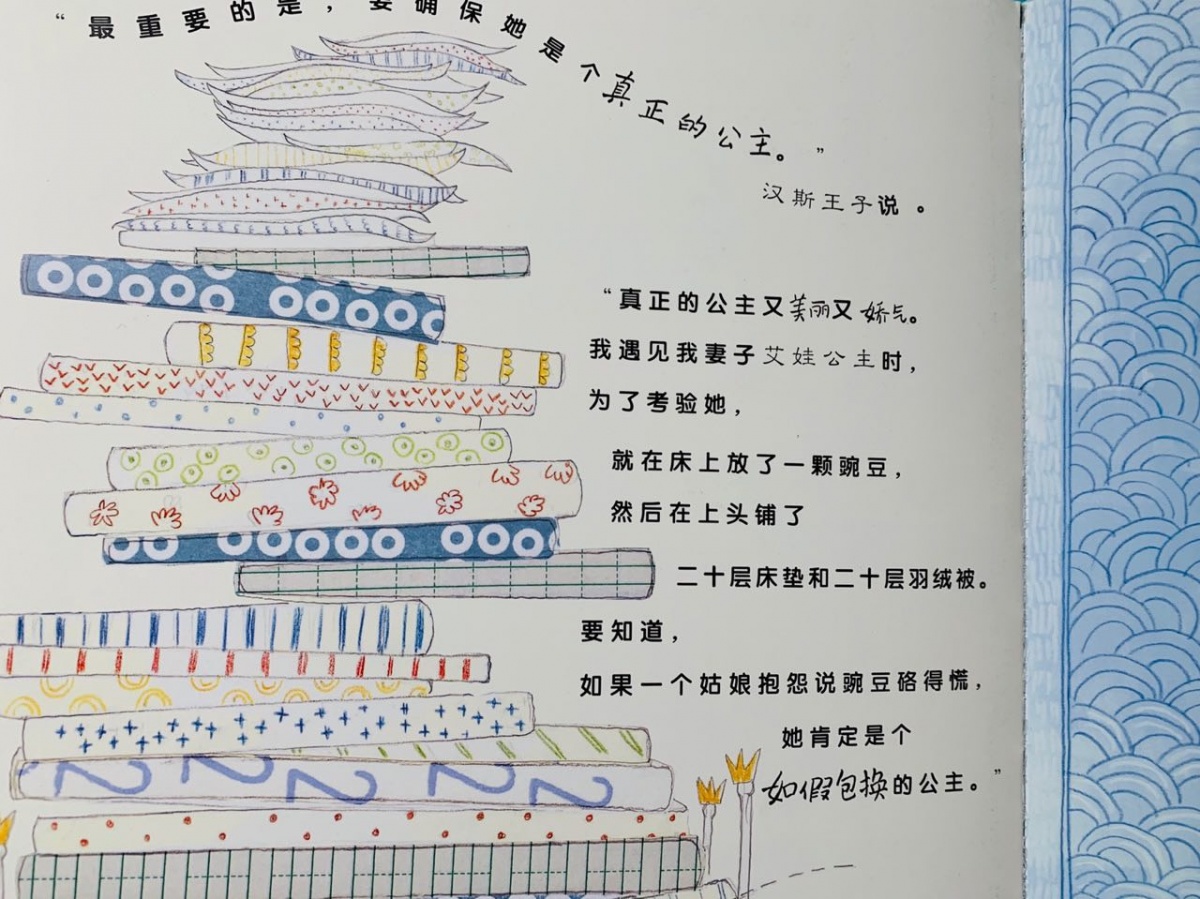 “最重要的是，要确保她是个真正的公主。”
汉斯王子说。
“真正的公主又美丽又娇气。
我遇见我妻子艾娃公主时，
为了考验她，
就在床上放了一颗豌豆，
然后在上头铺了
二十层床垫和二十层羽绒被。
要知道，
如果一个姑娘抱怨说豌豆硌得慌，
她肯定是个
如假包换的公主。”